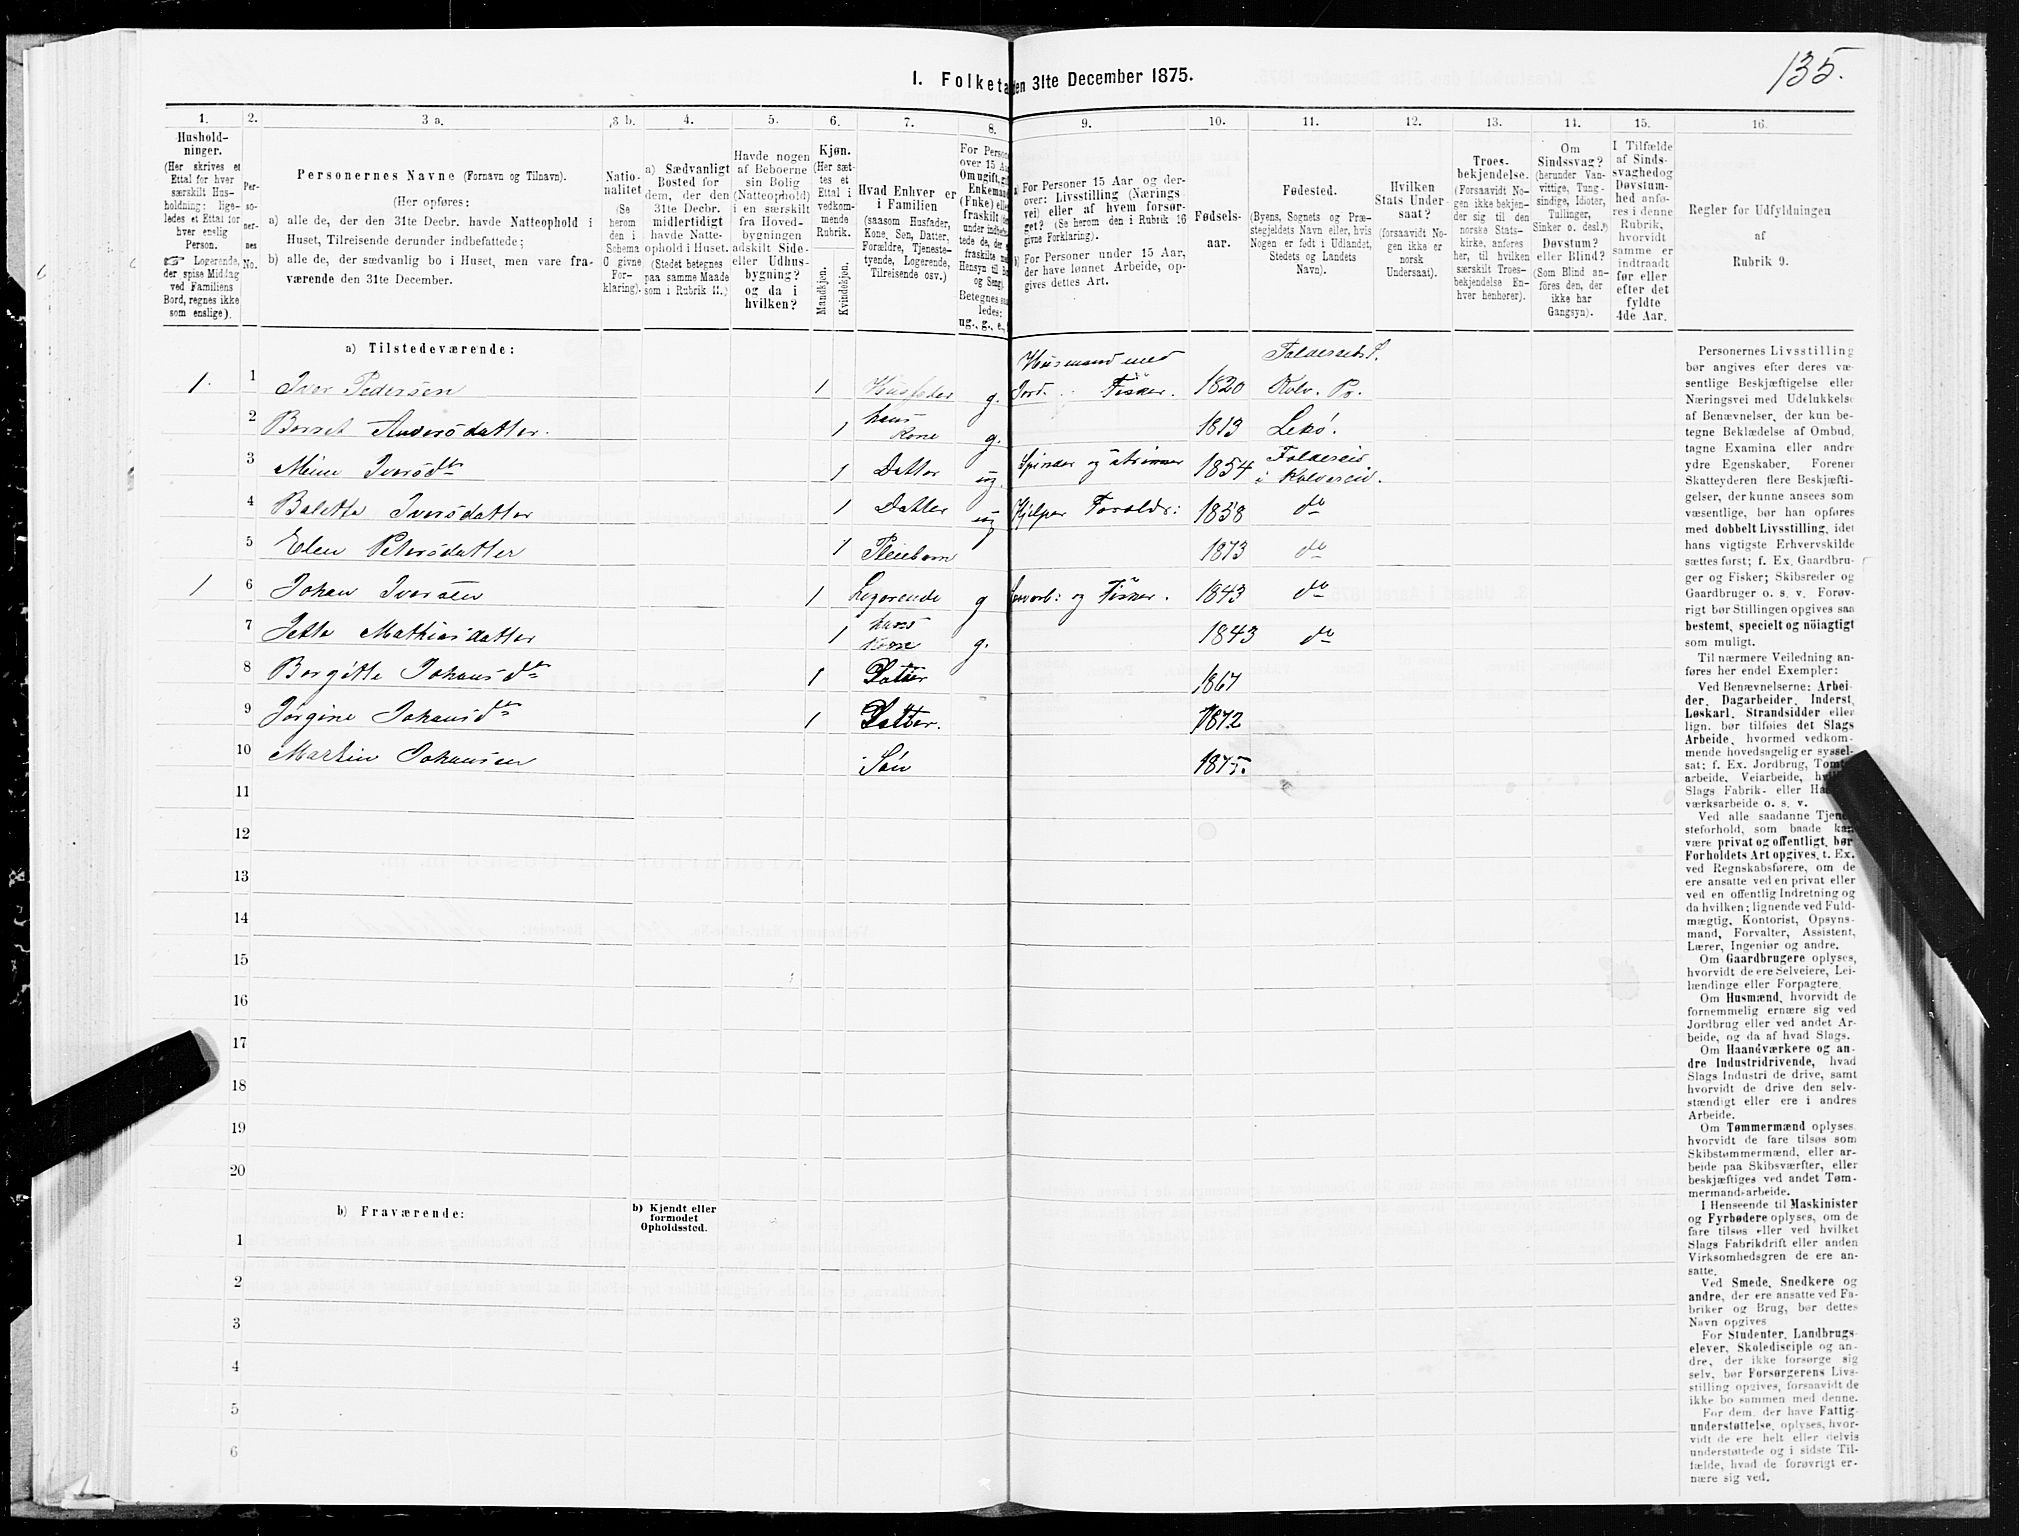 135.
I. Folketa
den 31te December 1875.
1.
2.
3 a.
3 b.
4.
5.
6.
7.
8.
9.
10.
11.
12.
13.
14.
15.
16.
Hushold-
ninger.
(Her skrives et
Ettal for hver
særskilt Hus-
holdning; lige-
ledes et Ettal for
hver enslig
Person.
☞ Logerende,
der spise Middag
ved Familiens
Bord, regnes ikke
som enslige).
Per-
so-
ner-
nes
No.
Personernes Navne (Fornavn og Tilnavn).
(Her opføres:
a) alle de, der den 31te Decbr. havde Natteophold i
Huset, Tilreisende derunder indbefattede;
b) alle de, der sædvanlig bo i Huset, men vare fra-
værende den 31te December.
Natio-
nalitet
(Se
herom
den i
Schema
C givne
For-
klaring).
a) Sædvanligt
Bosted for
dem, der den
31te Decbr.
midlertidigt
havde Natte-
ophold i Huset.
(Stedet betegnes
paa samme Maade
som i Rubrik 11.)
Havde nogen
af Beboerne
sin Bolig
(Natteophold)
i en særskilt
fra Hoved-
bygningen
adskilt Side-
eller Udhus-
bygning?
og da i
hvilken?
Kjøn.
(Her sæt-
tes et
Ettal i
vedkom-
mende
Rubrik.
Mandkjøn.
Kvindekjøn.
Hvad Enhver er
i Familien
(saasom Husfader,
Kone, Søn, Datter,
Forældre, Tjeneste-
tyende, Logerende,
Tilreisende osv.)
For Persone
over 15 Aar
Om ugift, gi
Enkemand
(Fnke) elle
fraskilt
Betegnes saa
ledes:
ug., g., e.,
a) For Personer 15 Aar og der-
over: Livsstilling (Nærings
vei) eller af hvem forsør-
get? (Se herom den i Rubrik 16
givne Forklaring).
b) For Personer under 15 Aar,
der have lønnet Arbeide, op-
gives dettes Art.
Fødsels-
aar.
Fødested.
(Byens, Sognets og Præ-
stegjeldets Navn eller, hvis
Nogen er født i Udlandet,
Stedets og Landets
Navn).
Hvilken
Stats Under-
saat?
(forsaavidt No-
gen ikke er
norsk
Undersaat).
Troes-
bekjendelse.
(Forsaavidt No-
gen ikke bekjen-
der sig til den
norske Stats-
kirke, anføres
her, til hvilken
særskilt Troes-
bekjendelse En-
hver henhører).
Om
Sindssvag?
(herunder Van-
vittige, Tung-
sindige, Idioter,
Tullinger,
Sinker o. desl.)
Døvstum?
eller Blind?
(Som Blind an-
føres den, der
ikke har
Gangsyn).
I Tilfælde
af Sinds-
svaghed og
Døvstum-
hed anfø-
res i denne
Rubrik,
hvorvidt
samme er
indtraadt
før eller
efter det
fyldte
4de Aar.
Regler for Udfyldningen
af
Rubrik 9.
a) Tilstedeværende:
Husmand med Foldereid S.
1 1 Iver Pedersen 1 Husfader g. Jord. Fisker. 1820 Kolv. Pr.
2 Berret Andersdatter. 1 hans Kone g. 1813 Lekø.
3 Mine Iversdtr 1 Datter ug. Spinder og Strikker 1854 Foldereid i Kolvereid.
4 Beletta Iversdatter 1 Datter ug Hjelper Foreldr: 1858 do
5 Elen Petersdatter 1 Pleiebarn 1873 do
1 6 Johan Iversen 1 Logerende g og Fisker. 1843 do
7 Jette Mathiasdatter 1 hans Kone g. 1843 do
8 Bergitte Johansdtr 1 Datter 1867
9 Jørgine Johansdtr 1 Datter. 1872
10 Martin Johansen Søn 1875.
11
12
13
14
15
16
17
18
19
20
b) Fraværende:
b) Kjendt eller
formodet
Opholdssted.
1
2
3
4
5
6
Personernes Livsstilling
bør angives efter deres væ-
sentlige Beskjæftigelse eller
Næringsvei med Udelukkelse
af Benævnelser, der kun be-
tegne Beklædelse af Ombud,
tagne Examina eller andre
ydre Egenskaber. Forener
Skatteyderen flere Beskjæfti-
gelser, der kunne ansees som
væsentlige, bør han opføres
med dobbelt Livsstilling, idet
hans vigtigste Erhvervskilde
sættes først; f. Ex. Gaardbru-
ger og Fisker; Skibsreder og
Gaardbruger o. s. v. Forøv-
rigt bør Stillingen opgives saa
bestemt, specielt og nöiagtigt
som muligt.
Til nærmere Veiledning an-
føres her endel Exempler:
Ved Benævnelserne: Arbei-
der, Dagarbeider, Inderst,
Løskarl, Strandsidder eller
lign. bør tilføies det Slags
Arbeide, hvormed vedkom-
mende hovedsagelig er syssel-
sat; f. Ex. Jordbrug, Tomte-
arbeide, Veiarbeide,
Slags Fabrik- eller
værksarbeide o. s. v.
Ved alle saadanne Tjene-
steforhold, som baade kan
være privat og offentligt, bør
Forholdets Art opgives, t. Ex.
ved Regnskabsførere, om de
ere ansatte ved en privat eller
ved en offentlig Indretning og
da hvilken; lignende ved Fuld-
mægtig, Kontorist, Opsyns-
mand, Forvalter, Assistent,
Lærer, Ingeniør og andre.
Om Gaardbrugere oplyses,
hvorvidt de ere Selveiere, Lei-
lændinge eller Forpagtere.
Om Husmænd, hvorvidt de
fornemmelig ernære sig ved
Jordbrug eller ved andet Ar-
beide, og da af hvad Slags.
Om Haandværkere og an-
dre Industridrivende, hvad
Slags Industri de drive, samt
hvorvidt de drive den selv-
stændigt eller ere i andres
Arbeide.
Om Tømmermænd oplyses,
hvorvidt de fare tilsøs som
Skibstømmermænd, eller ar-
beide paa Skibsværfter, eller
beskjæftiges ved andet Tøm-
mermandsarbeide.
I Henseende til Maskinister
og Fyrbødere oplyses, om de
fare tilsøs eller ved hvilket
Slags Fabrikdrift eller anden
Virksomhedsgren de ere an-
satte.
Ved Smede, Snedkere og
andre, der ere ansatte ved Fa-
briker og Brug, bør dettes
Navn opgives
For Studenter, Landbrugs-
elever, Skoledisciple og an-
dre, der ikke forsørge sig
selv, bør Forsørgerens Livs-
stilling opgives, forsaavidt de
ikke bo sammen med denne.
For dem, der have Fattig-
understøttelse, oplyses, hvor-
vidt de ere helt eller delvis
understøttede og i sidste Til-
fælde, hvad de forøvrigt er-
nære sig ved.